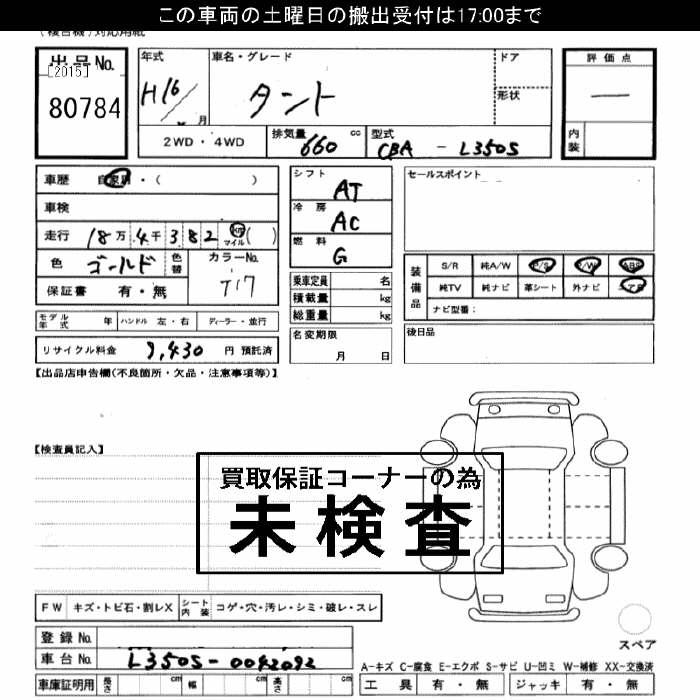 この車両の土曜日の搬出受付は17:00まで
出品No.
[2015]
80784
年式
H16
月
車名・グレード
タント
ドア
形状
評価点
内装
2WD・4WD
排気量
660
cc
型式
CBA - L350S
車歴 自家用・( )
車検
走行 18万4千382 km マイル( )
色 ゴールド 色替
カラーNo.
T17
保証書 有・無
モデル年式 年 ハンドル 左・右 ディーラー・並行
リサイクル料金 9,430 円 預託済
シフト
AT
冷房
AC
燃料
G
乗車定員 名
積載量 kg
総重量 kg
名変期限
月 日
セールスポイント
装備品
S/R 純A/W P/S P/W ABS
純TV 純ナビ 革シート 外ナビ エアB
ナビ型番:
後日品
【出品店申告欄(不良箇所・欠品・注意事項等)】
【検査員記入】
買取保証コーナーの為
未検査
FW キズ・トビ石・割レX シート内装 コゲ・穴・汚レ・シミ・破レ・スレ
登録No.
車台No. L350S-0042092
車庫証明用 長さ cm 幅 cm 高さ cm
スペア
A-キズ C-腐食 E-エクボ S-サビ U-凹ミ W-補修 XX-交換済
工具 有・無 ジャッキ 有・無